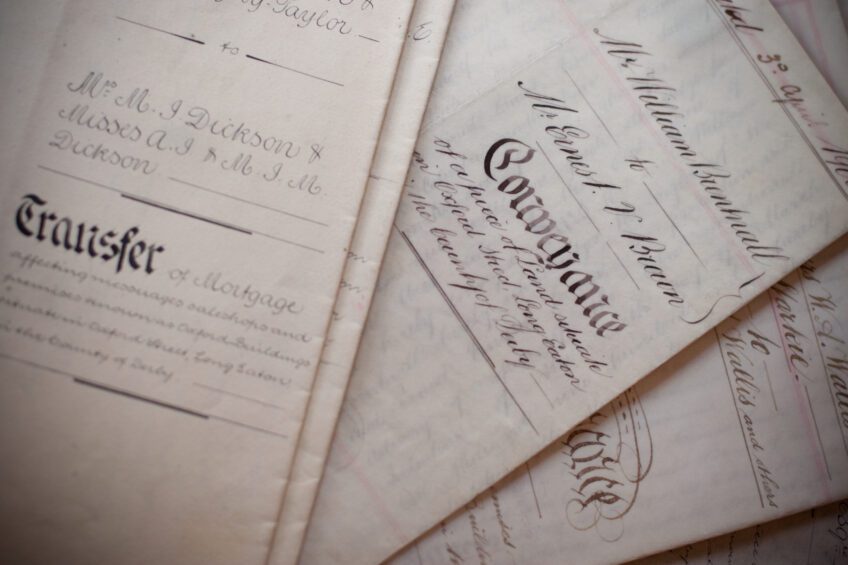 Taylor
to
Mrs M. J Dickson &
Misses A. J & M. J. M.
Dickson
Transfer of Mortgage
affecting messuages saleshops and
premises known as Oxford Buildings
situate in Oxford Street, Long Eaton
in the County of Derby
3rd April
Mr William Bramhall
to
Mr Ernest. V. Braun
Conveyance
of a piece of Land situate
in Oxford Street Long Eaton
in the County of Derby
W. A. Wallis
to
Wallis and others